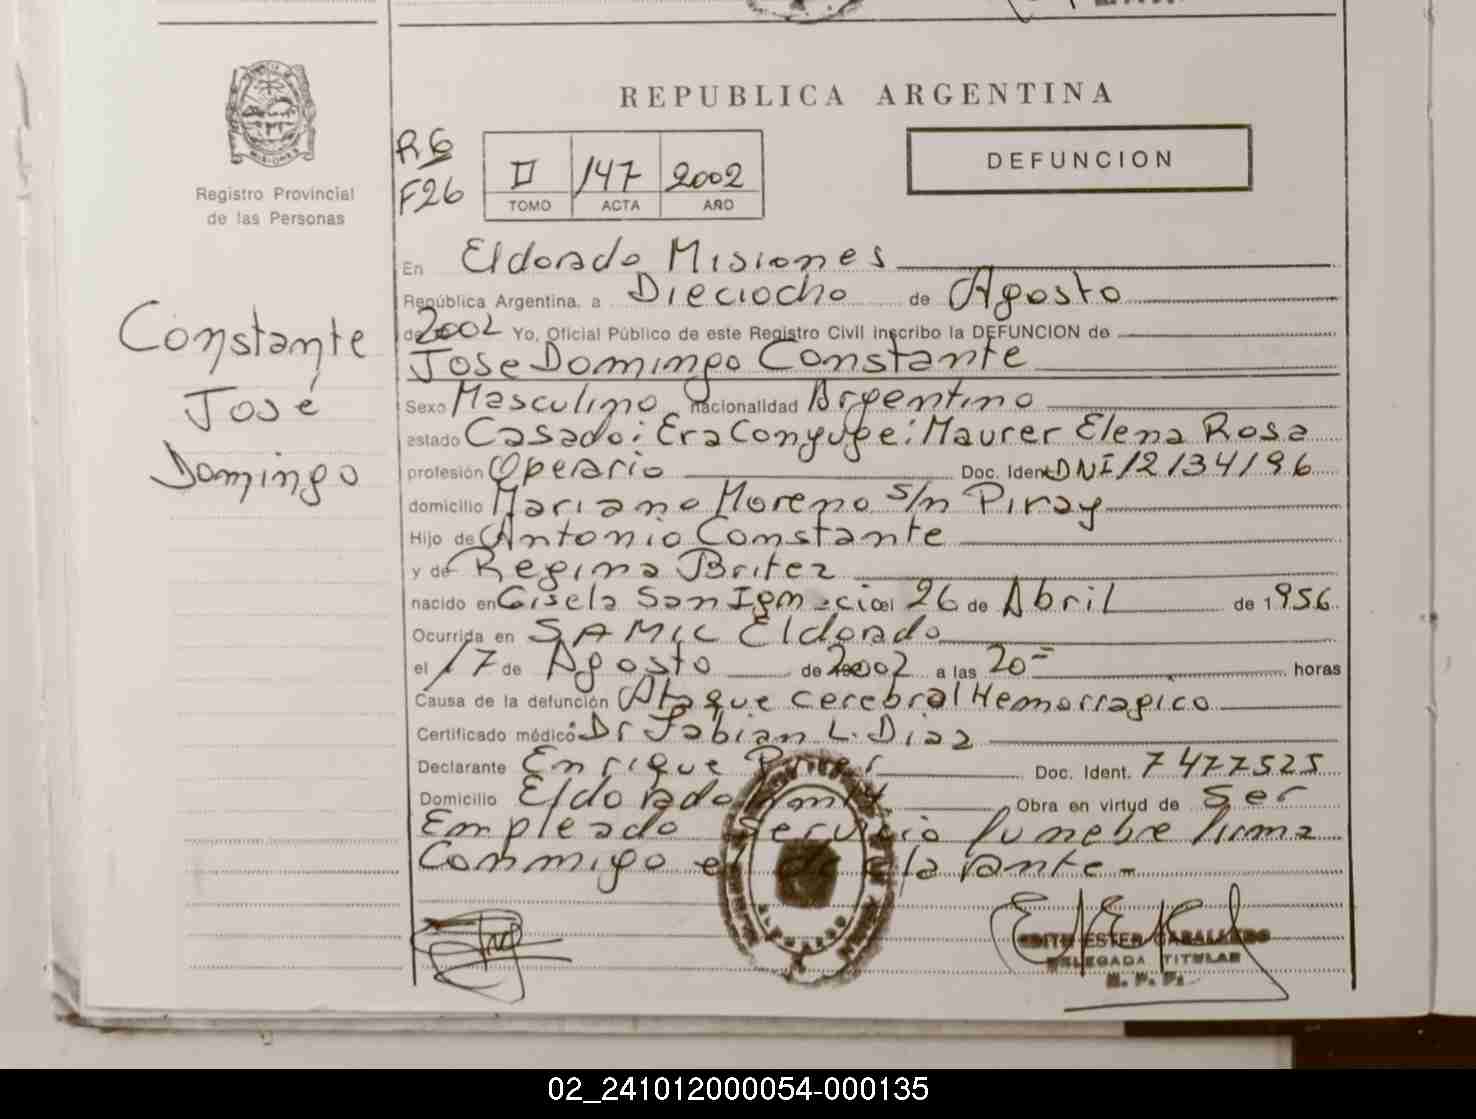 REPUBLICA ARGENTINA
Registro Provincial
de las Personas
R6
F26
II 147 2002
TOMO ACTA AÑO
DEFUNCION
Constante
José
Domingo
En Eldorado Misiones
República Argentina, a Dieciocho de Agosto
de 2002 Yo, Oficial Público de este Registro Civil inscribo la DEFUNCION de
Jose Domingo Constante
Sexo Masculino nacionalidad Argentino
estado Casado: Era Conyuge: Maurer Elena Rosa
profesión Operario Doc. Ident. DNI 12134196
domicilio Mariano Moreno s/n Piray
Hijo de Antonio Constante
y de Regina Britez
nacido en Gisela San Ignacio el 26 de Abril de 1956
Ocurrida en SAMIC Eldorado
el 17 de Agosto de 2002 a las 20= horas
Causa de la defunción Ataque cerebral Hemorragico
Certificado médico: Dr Fabian L. Diaz
Declarante Enrique
Doc. Ident. 7477525
Domicilio Eldorado
Obra en virtud de Ser
Empleado Servicio funebre firma
Conmigo el declarante-
EDITH ESTER CABALLERO
DELEGADA TITULAR
R. P. P.
02_241012000054-000135